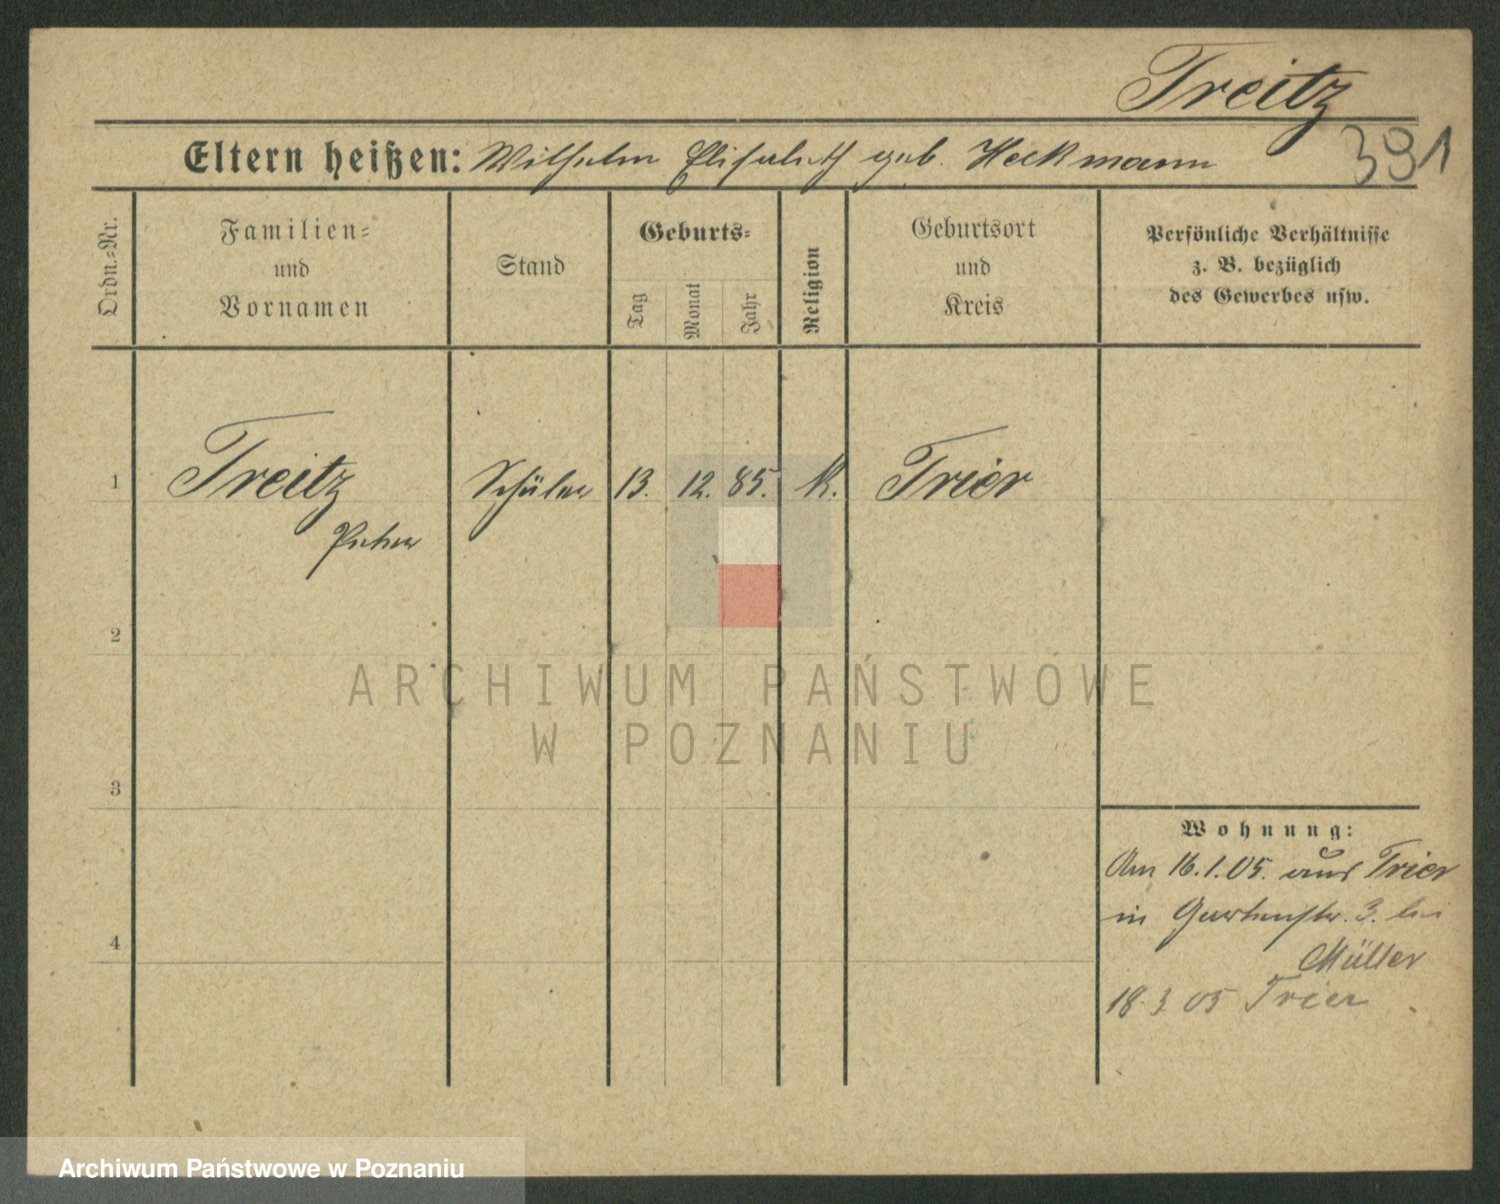 Treitz
391
Eltern heißen: Wilhelm Elisabeth geb. Heckmann
Ordn.-Nr.
Familien-
und
Vornamen
Stand
Geburts-
Tag
Monat
Jahr
Religion
Geburtsort
und
Kreis
Persönliche Verhältnisse
z. B. bezüglich
des Gewerbes usw.
1
Treitz
Peter
Schüler
13.
12.
85.
K.
Trier
2
ARCHIWUM PAŃSTWOWE
W POZNANIU
3
Wohnung:
Am 16.1.05. aus Trier
in Gartenstr. 3. bei
Müller
18 3 05 Trier
4
Archiwum Państwowe w Poznaniu